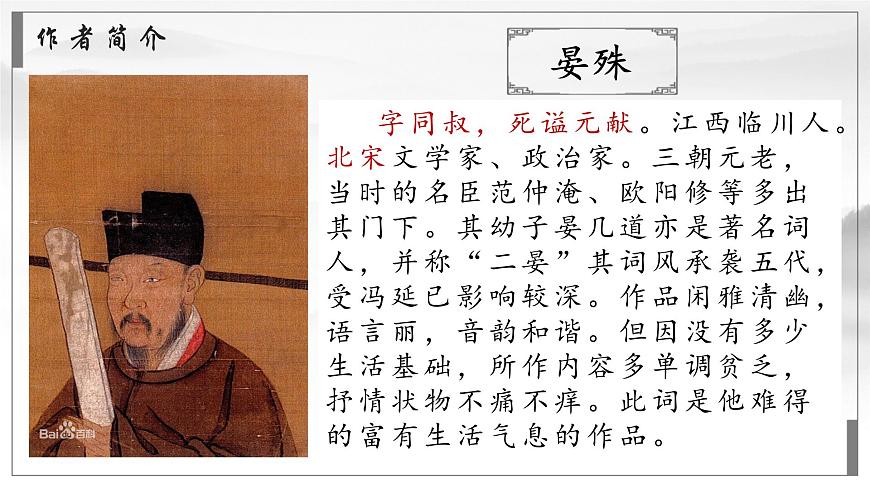 作者简介
晏殊
字同叔，死谥元献。江西临川人。
北宋文学家、政治家。三朝元老，
当时的名臣范仲淹、欧阳修等多出
其门下。其幼子晏几道亦是著名词
人，并称“二晏”其词风承袭五代，
受冯延已影响较深。作品闲雅清幽，
语言丽，音韵和谐。但因没有多少
生活基础，所作内容多单调贫乏，
抒情状物不痛不痒。此词是他难得
的富有生活气息的作品。
Bai百科